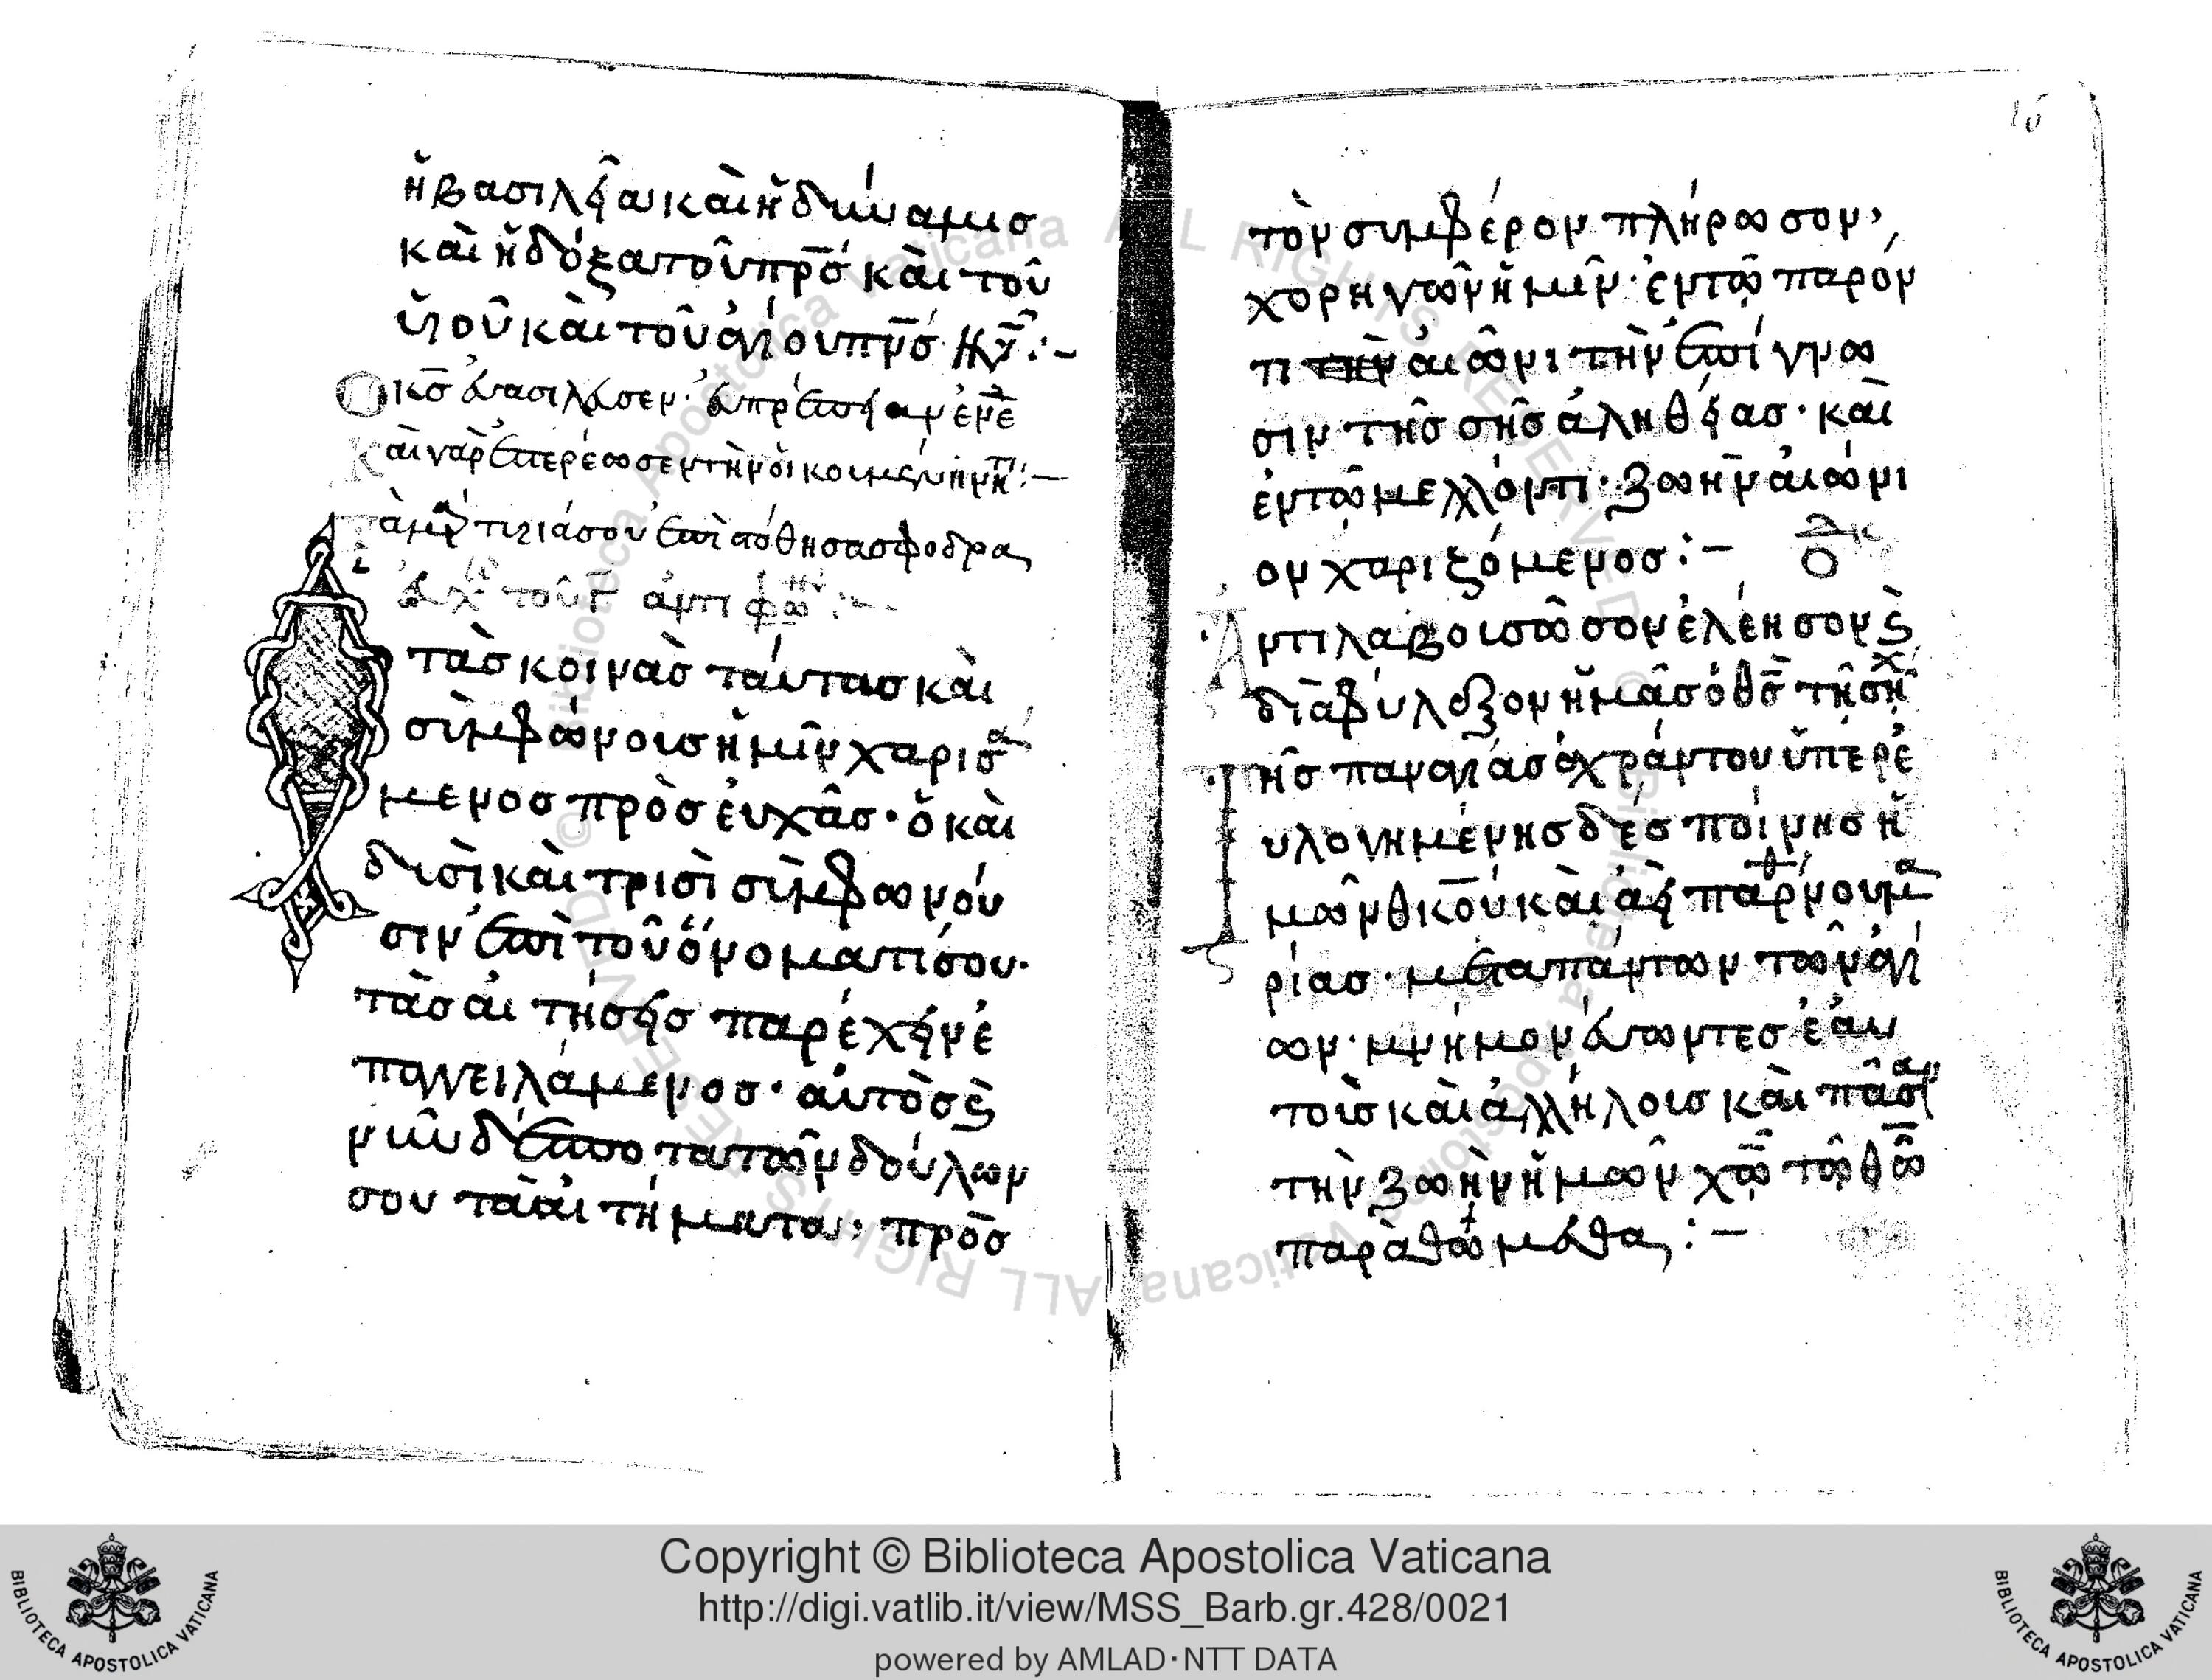 ἡ βασιλεία καὶ ἡ δύναμισ
καὶ ἡ δόξα τοῦ πρσ καὶ τοῦ
ὑιοῦ καὶ τοῦ ἁγίου πνσ
κσ ἐβασίλευσεν· ἐυπρέπειαν
καὶ γὰρ ἐστερέωσεν τὴν ὀικουμένην
τὰ μαρτύριά σου ἐπιστόθησα σφοδρα
ἐυχ τοῦ γ ἀντιφω
τὰσ κοινὰσ ταύτασ καὶ
σὺμφώνουσ ἡμῖν χαρισα
μενοσ πρὸσ ἐυχᾶσ· ὁ καὶ
δυσὶ καὶ τρισὶ σὺμφωνόυ
σιν ἐπὶ τοῦ ὀνοματί σου·
τὰσ ἀιτήσεισ παρέχειν ἐ
παγγειλάμενοσ· ἀυτὸσ καὶ
νῦν δέσποτα τῶν δούλων
σου τὰ ἀιτήματα, πρὸσ
16
τὸν συμφέρον πλήρωσον,
χορηγῶν ἡμῖν· ἐν τῷ παρόν
τι ἀιῶνι τὴν ἐπίγνω
σιν τῆσ σῆσ ἀληθείασ· καὶ
ἐν τῶ μελλόντι· ζωὴν ἀιώνι
ον χαριζόμενοσ:-
Ἀντιλαβοι σῶσον ἐλέησον καὶ
διὰφύλαξον ἡμᾶσ ὁ θσ τῆ σῆ χ
Τῆσ παναγίασ ἀχράντου ὑπερε
υλογημένησ δέσποίνησ ἡ
μῶν θκου καὶ ἀει παρθένου μα
ρίασ· μετα πάντων τῶν ἁγί
ων· μνημονέυσωντεσ ἑάυ
τοὺσ καὶ ἀλλήλουσ καὶ πᾶσαν
τὴν ζωὴν ἡμῶν χω τῶ θω
παρὰθώμεθα:-
Copyright © Biblioteca Apostolica Vaticana
http://digi.vatlib.it/view/MSS_Barb.gr.428/0021
powered by AMLAD·NTT DATA
BIBLIOTECA APOSTOLICA VATICANA
BIBLIOTECA APOSTOLICA VATICANA